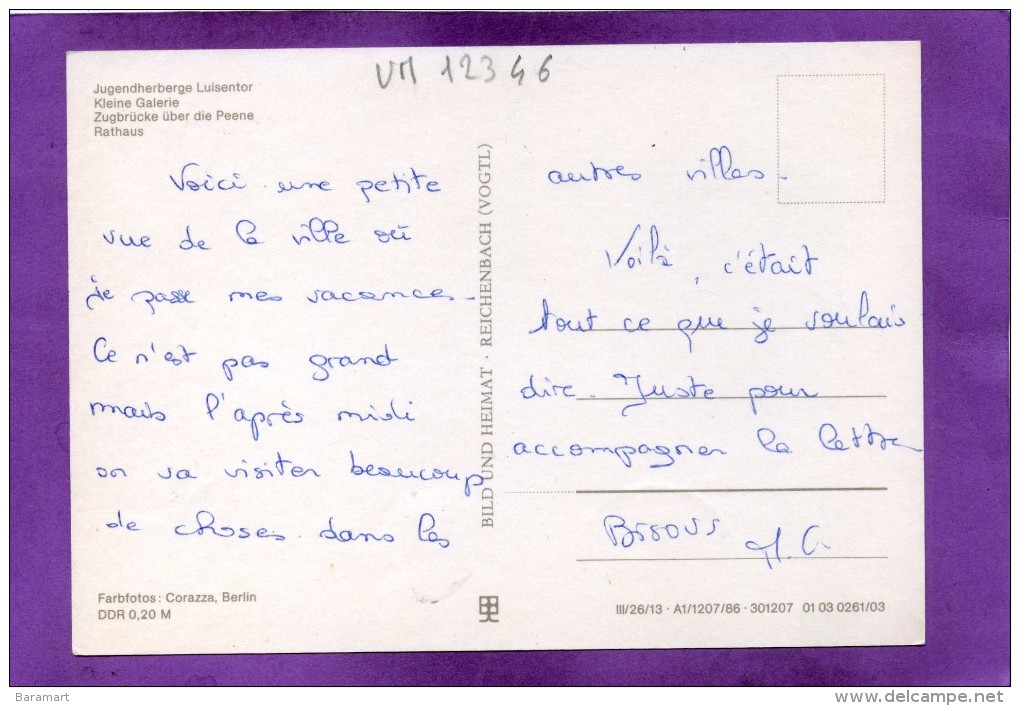 VM 12346
Jugendherberge Luisentor
Kleine Galerie
Zugbrücke über die Peene
Rathaus
Voici une petite
vue de la ville où
je passe mes vacances.
Ce n'est pas grand
mais l'après midi
on va visiter beaucoup
de choses dans les
Farbfotos: Corazza, Berlin
DDR 0,20 M
BILD UND HEIMAT · REICHENBACH (VOGTL)
autres villes.
Voilà, c'était
tout ce que je voulais
dire. Juste pour
accompagner la lettre
Bisous
III/26/13 · A1/1207/86 · 301207 01 03 0261/03
Baramart
delcampe.net